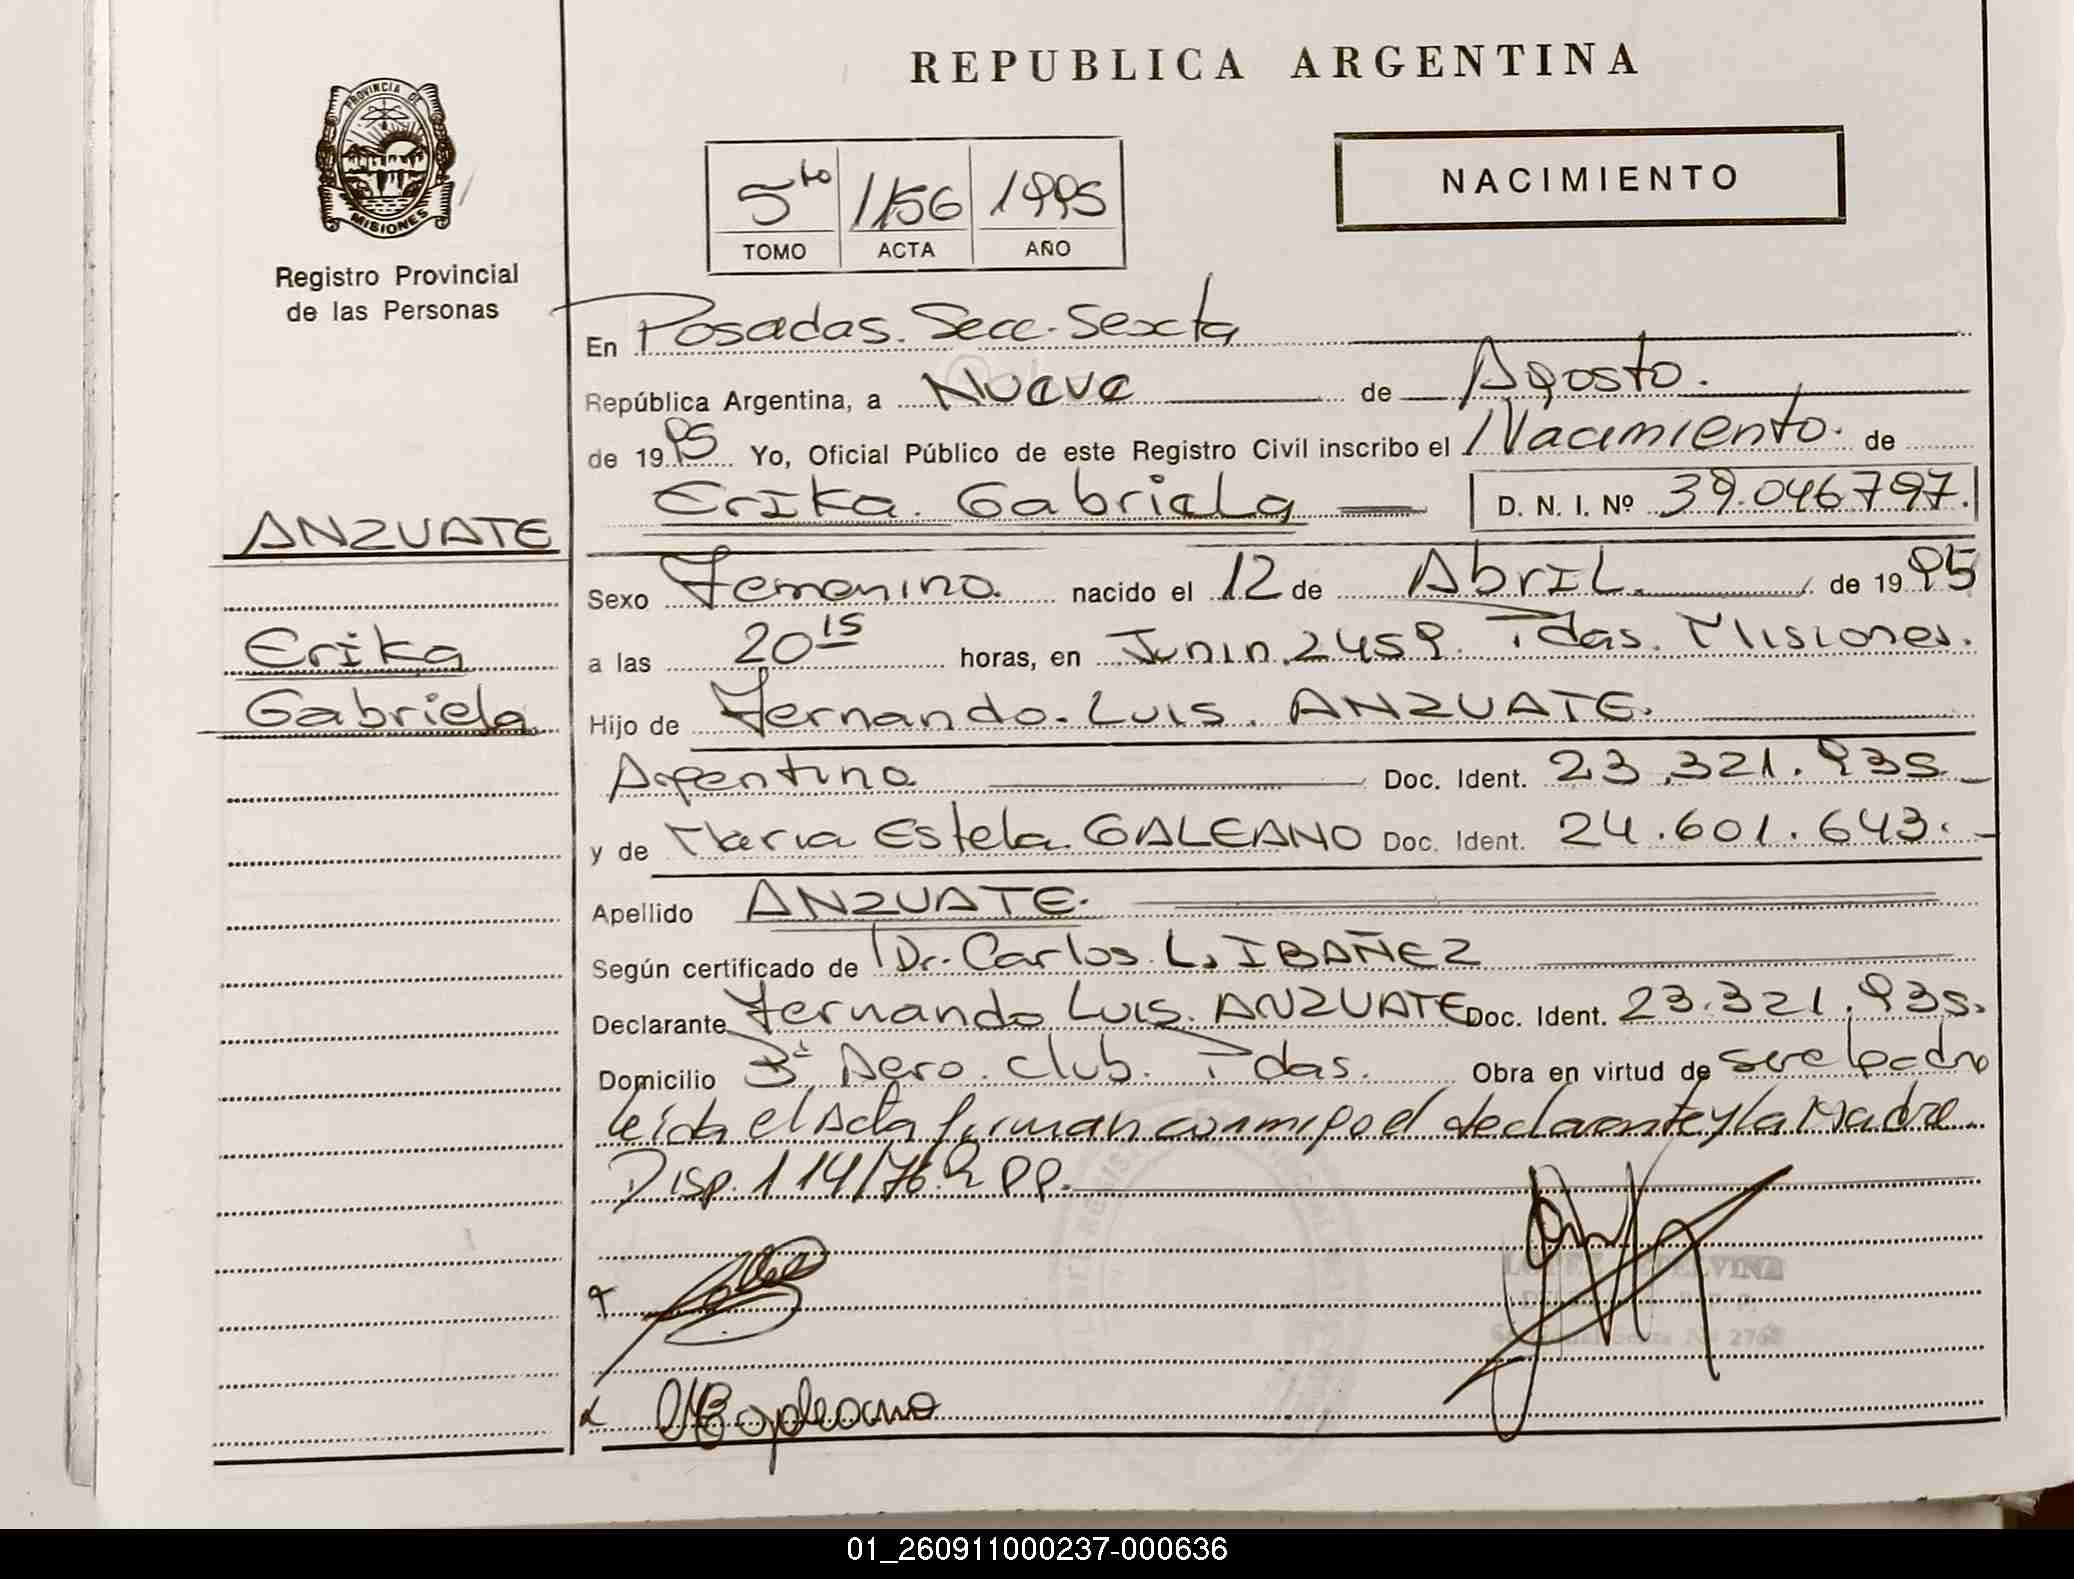 REPUBLICA ARGENTINA
PROVINCIA DE
MISIONES
Registro Provincial
de las Personas
NACIMIENTO
5to 1156 1995
TOMO ACTA AÑO
En Posadas. Secc. Sexta
República Argentina, a Nueve de Agosto.
de 1995 Yo, Oficial Público de este Registro Civil inscribo el Nacimiento. de
Erika. Gabriela D. N. I. Nº 39.046797.
ANZUATE
Erika
Gabriela
Sexo Femenino. nacido el 12 de Abril. de 1995
a las 20 15 horas, en Junin. 2459. Pdas. Misiones.
Hijo de Fernando. Luis. ANZUATE.
Argentino Doc. Ident. 23.321.935
y de Maria Estela. GALEANO Doc. Ident. 24.601.643.
Apellido ANZUATE.
Según certificado de Dr. Carlos. L. IBAÑEZ
Declarante Fernando Luis. ANZUATE Doc. Ident. 23.321.935.
Domicilio Bº Aero. Club. Pdas. Obra en virtud de ser el padre
leida el Acta firman conmigo el declarante y la Madre
Disp. 114/76. R PP.
01_260911000237-000636